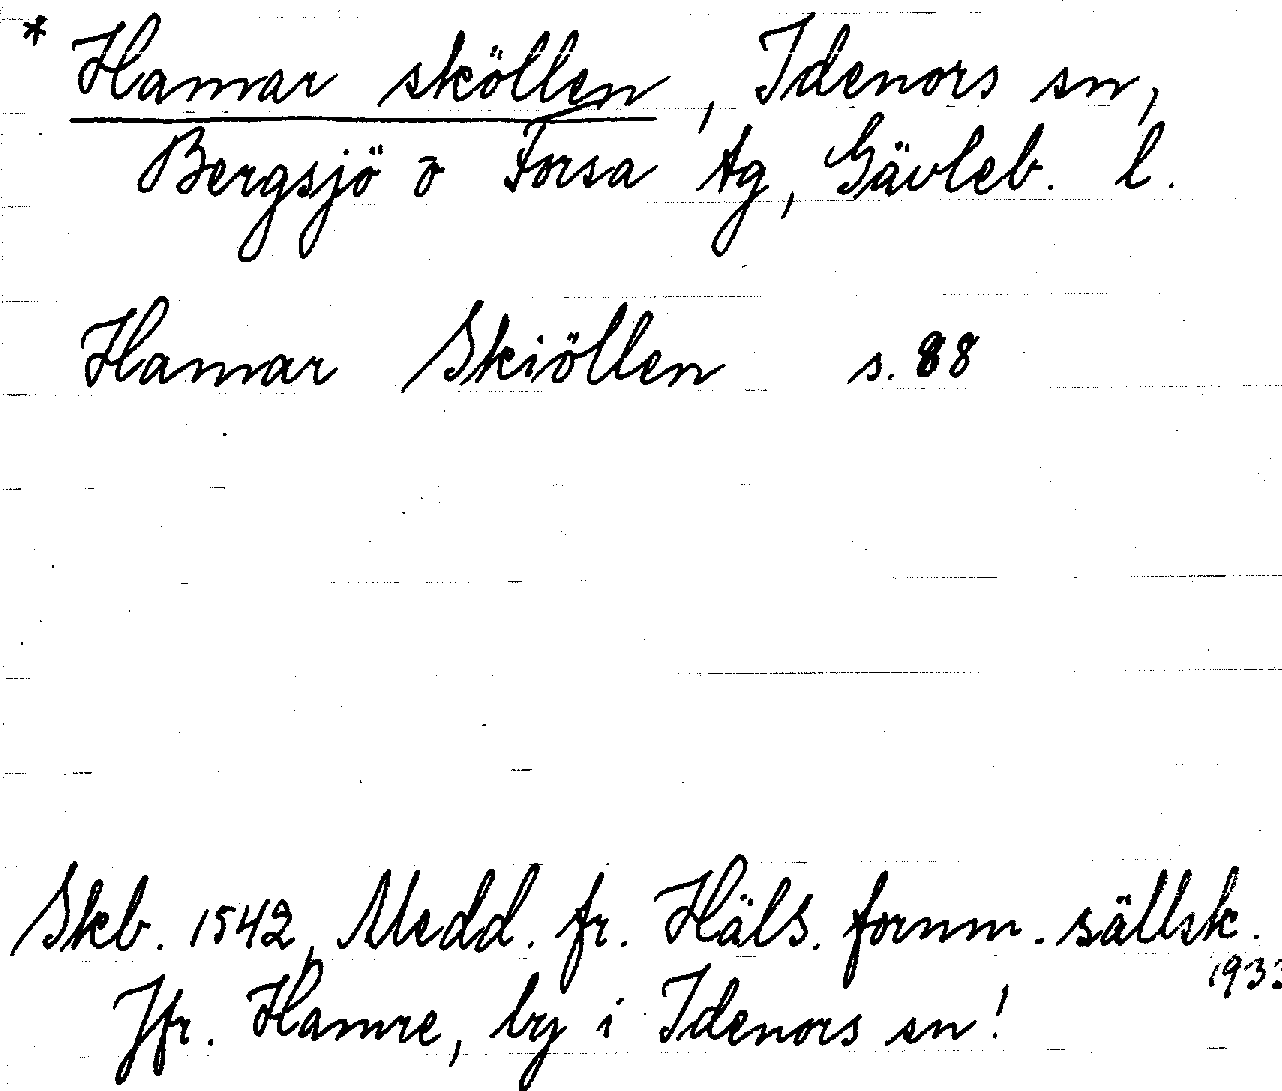 * Hamar sköllen, Idenors sn,
Bergsjö o Forsa tg, Gävleb. l.
Hamar Skiöllen s. 88
Skb. 1542, Medd. fr. Häls. fornm. sällsk.
1933
Jfr. Hamre, by i Idenors sn!